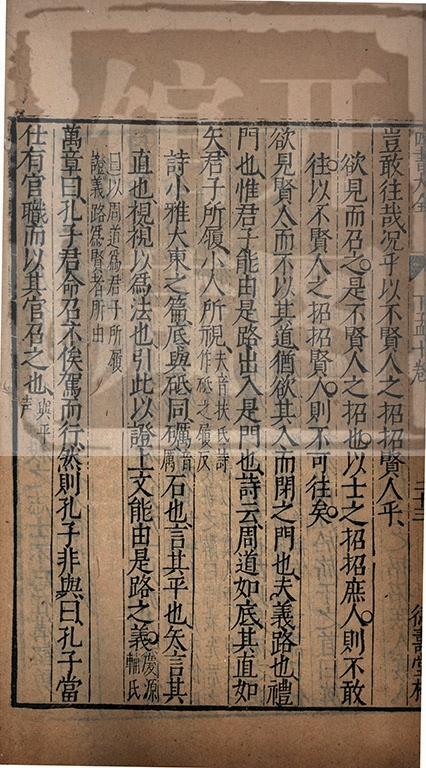 豈敢往哉況乎以不賢人之招招賢人乎
欲見而召之是不賢人之招也以士之招招庶人則不敢
往以不賢人之招招賢人則不可往矣
欲見賢人而不以其道猶欲其入而閉之門也夫義路也禮
門也惟君子能由是路出入是門也詩云周道如底其直如
矢君子所履小人所視夫音扶氏詩作砥之履反
詩小雅大東之篇底與砥同礪厲音厲石也言其平也矢言其
直也視視以為法也引此以證上文能由是路之義慶源輔氏
曰以周道為君子所履證義路為賢者所由
萬章曰孔子君命召不俟駕而行然則孔子非與曰孔子當
仕有官職而以其官召之也與平聲